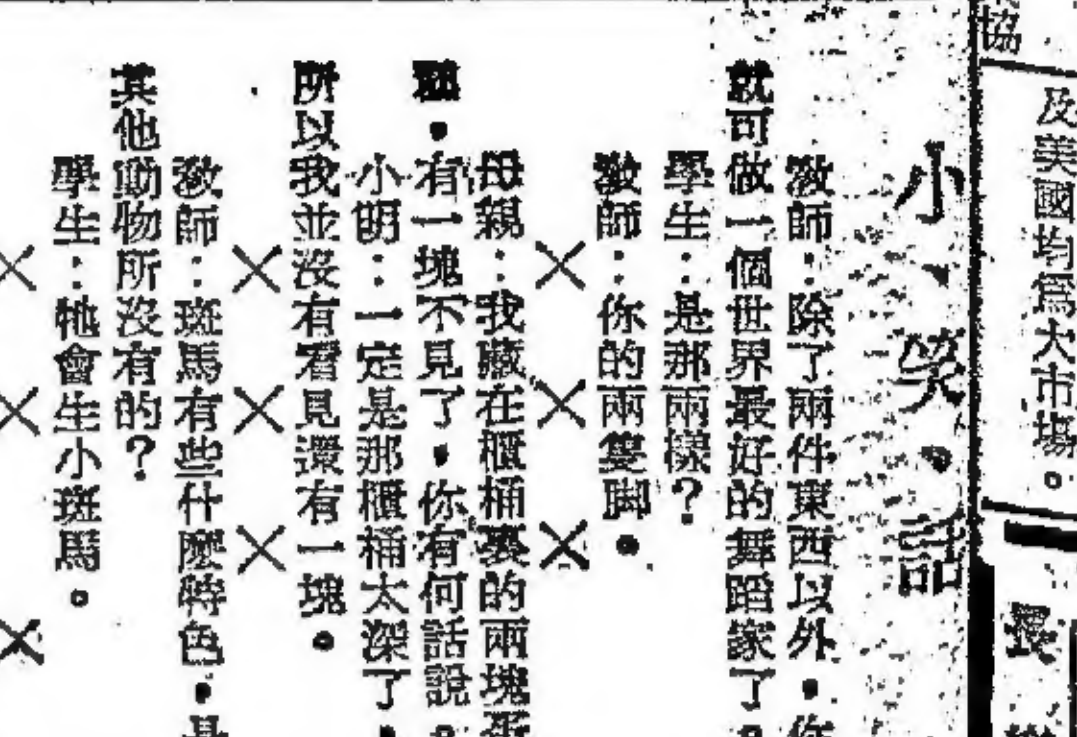 協
及美國均爲大市場。
小、笑、話
教師：除了兩件東西以外，你
就可做一個世界最好的舞蹈家了。
學生：是那兩樣？
教師：你的兩隻脚。
×××
母親：我藏在櫃桶裏的兩塊蛋
，有一塊不見了，你有何話說。
小明：一定是那櫃桶太深了，
所以我並沒有看見還有一塊。
×××
教師：斑馬有些什麽特色，是
其他動物所沒有的？
學生：牠會生小斑馬。
×××